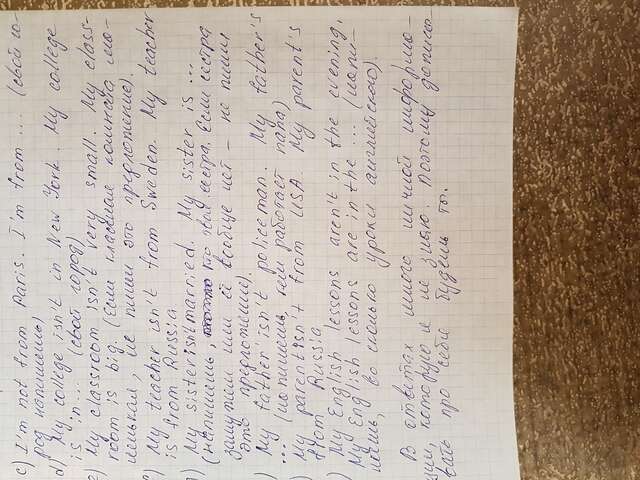 c) I'm not from Paris. I'm from ... (свой го-
род напишешь)
d) My college isn't in New York. My college
is in... (свой город)
e) My classroom isn't very small. My class-
room is big. (Если классная комната ма-
ленькая, не пиши это предложение).
f) My teacher isn't from Sweden. My teacher
is from Russia
) My sister isn't married. My sister is ...
(напишешь, кто твоя сестра. Если сестра
замужем или её вообще нет - не пиши
это предложение).
) My father isn't policeman. My father's
... (напишешь, кем работает папа)
) My parent isn't from USA. My parent's
from Russia
) My English lessons aren't in the evening.
My English lessons are in the ... (напи-
шешь, во сколько уроки английского).
В ответах много личной информа-
ции, которую я не знаю. Поэтому дописы-
вать про себя будешь ты.